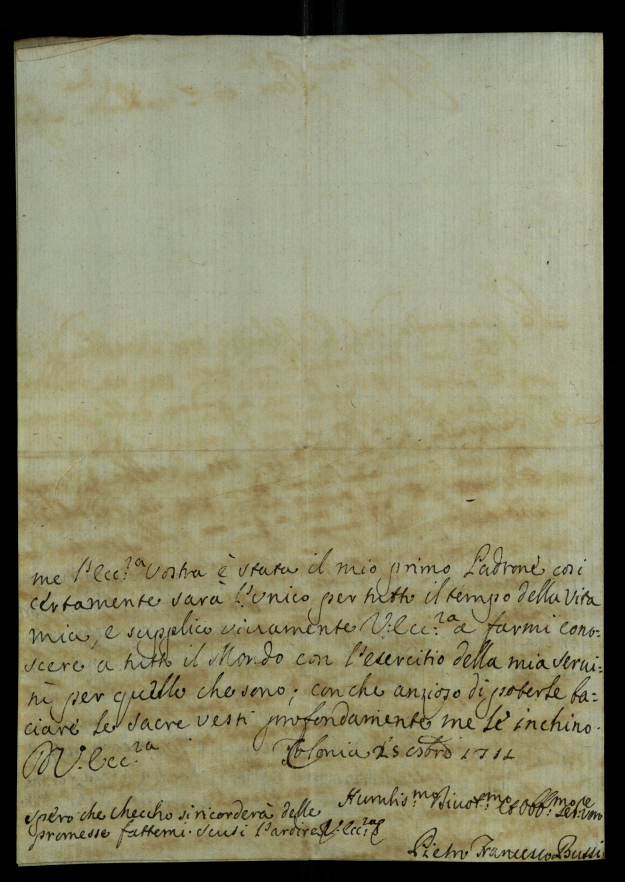 me l'Ecc.za Vostra è stata il mio primo Padrone così
certamente sara l'Unico per tutto il tempo della Vita
mia, e supplico vivamente V. Ecc.za a farmi cono-
scere a tutto il Mondo con l'esercitio della mia servi-
tù per quello che sono; con che anzioso di poterle ba-
ciare le sacre vesti profondamente me le inchino.
D V. Ecc.za Colonia 25 1711
Humilis.mo Divot.mo et Obb.mo
spero che Checho si ricorderà delle
promesse fattemi. Scusi l'ardire V. Ecc.za
Pietro Francesco Bussi